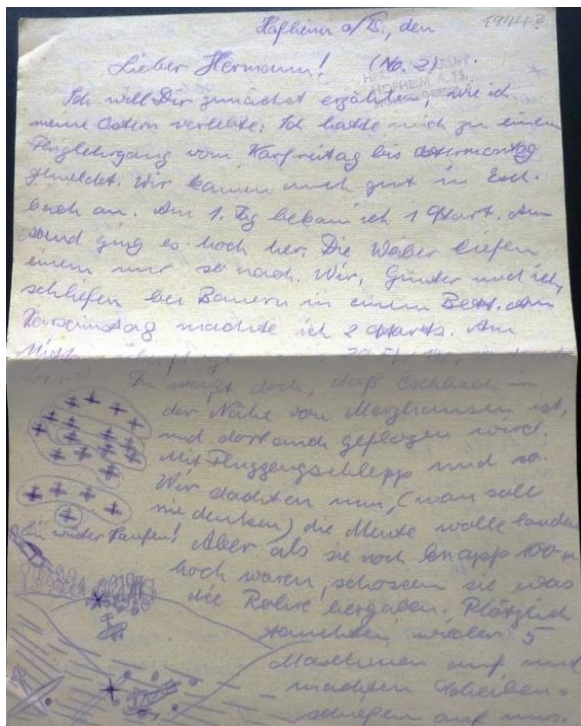 Hofheim a/Ts., den
1944?
Lieber Hermann! (No. 2)
HOFHEIM A. TS.
Ich will Dir zunächst erzählen, wie ich
meine Ostern verlebte. Ich hatte mich zu einem
Fluglehrgang vom Karfreitag bis Ostermontag
gemeldet. Wir kamen auch gut in Esch-
bach an. Am 1. Tag bekam ich 1 Start. Am
Abend ging es hoch her. Die Weiber liefen
einem nur so nach. Wir, Günter und ich,
schliefen bei Bauern in einem Bett. Am
Karsamstag machte ich 2 Starts. Am
Du weißt doch, daß Eschbach in
der Nähe von Merzhausen ist,
und dort auch geflogen wird.
Mit Flugzeugschlepp und so.
Wir dachten nun, (man soll
nie denken) die Meute wolle landen
Aber als sie noch knapp 100 m
hoch waren, schossen sie was
die Rohre hergaben. Plötzlich
tauchten wieder 5
Maschinen auf und
machten Scheiben-
schießen auf uns.